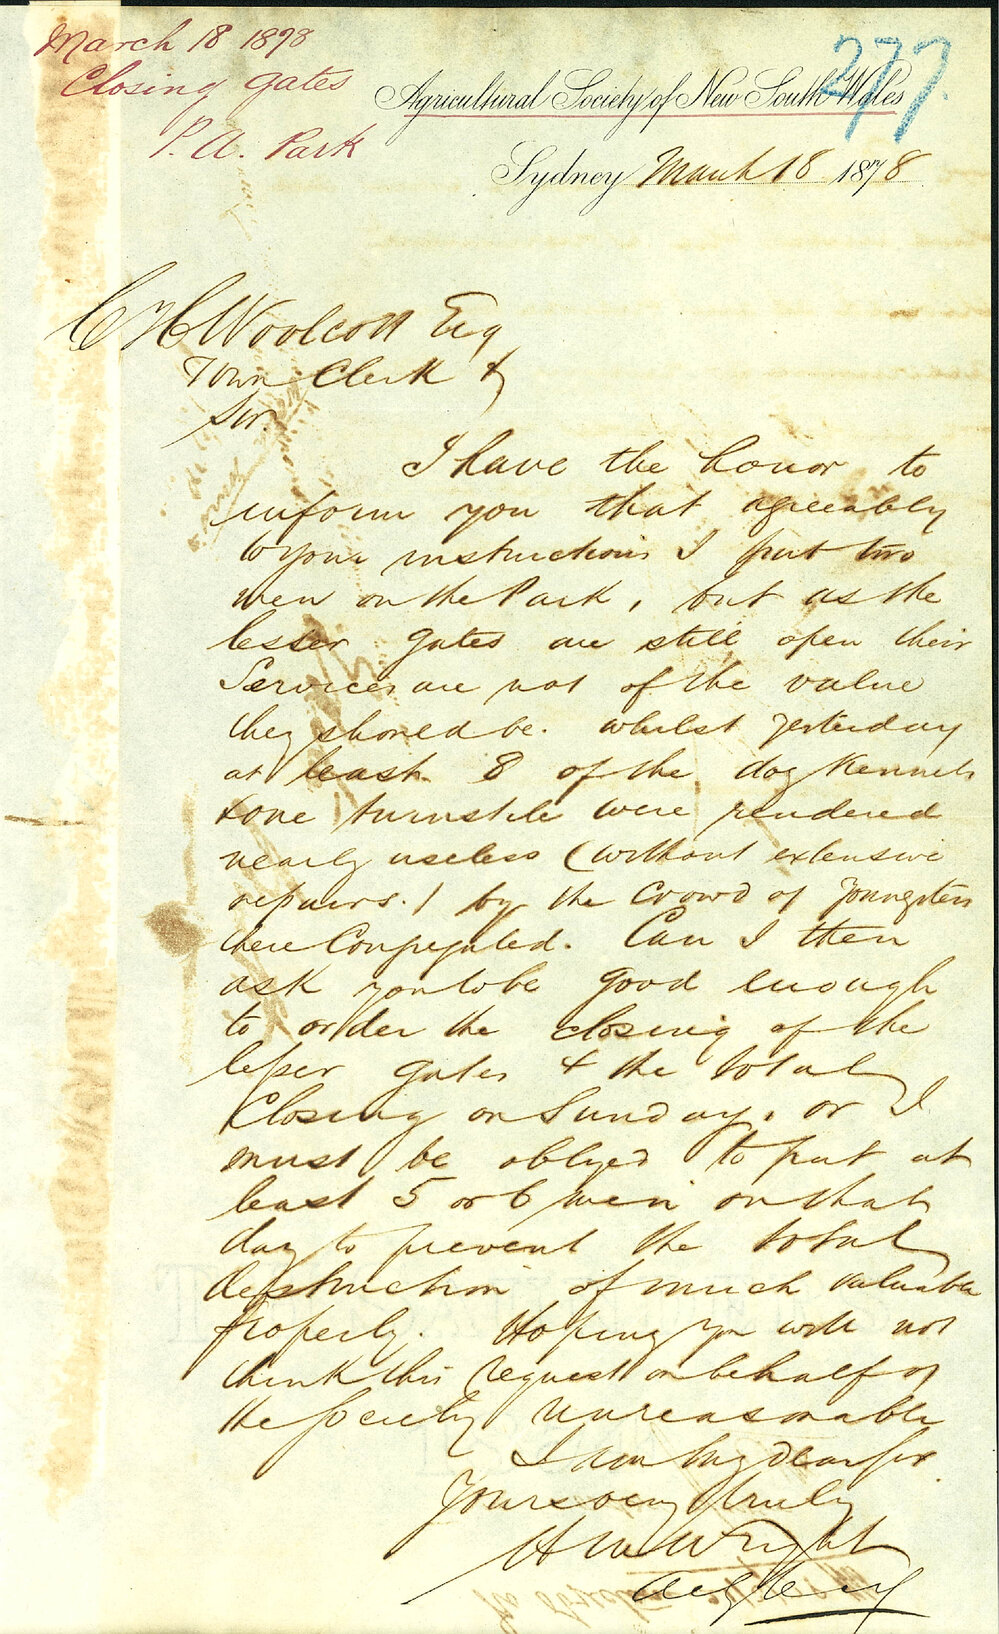 March 18 1878
Closing gates
P. A. Park
277.
Agricultural Society of New South Wales
Sydney March 18 1878
C H Woolcott Esq
Town Clerk &
Sir.
I have the honor to
inform you that agreeably
to your instructions I put two
men on the Park, but as the
lesser gates are still open their
Services are not of the value
they should be. whilst yesterday
at least 8 of the dog Kennels
& one turnstile were rendered
nearly useless (without extensive
repairs.) by the Crowd of Youngsters
there Congregated. Can I then
ask you to be good enough
to order the closing of the
lesser gates & the total
Closing on Sunday. or I
must be obliged to put at
least 5 or 6 men on that
day to prevent the total
destruction of much valuable
property. Hoping you will not
think this request on behalf of
the Society unreasonable
I am my dear Sir
Yours very truly
H W Wright
Actg Secy